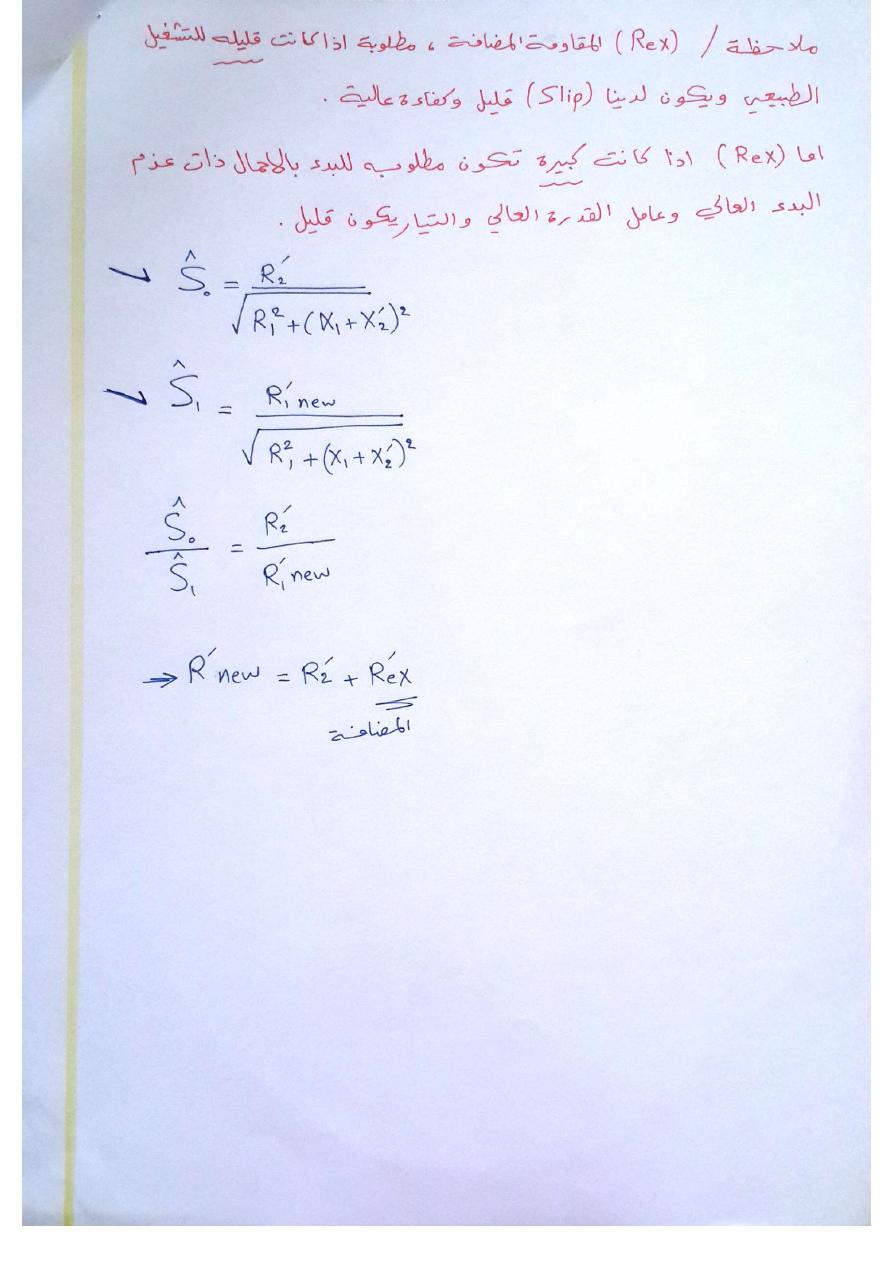 ملاحظة / (Rex) المقاومة المضافة ، مطلوبة اذا كانت قليله للتشغيل
الطبيعي ويكون لدينا (Slip) قليل وكفاءة عالية .
اما (Rex) اذا كانت كبيرة تكون مطلوبه للبدء بالاحمال ذات عزم
البدء العالي وعامل القدرة العالي والتيار يكون قليل .
Ŝ₀ = R₂′ / √(R₁² + (X₁ + X₂′)²)
Ŝ₁ = R₁′ new / √(R₁² + (X₁ + X₂′)²)
Ŝ₀ / Ŝ₁ = R₂′ / R₁′ new
→ R′ new = R₂′ + R′ex
المضافة